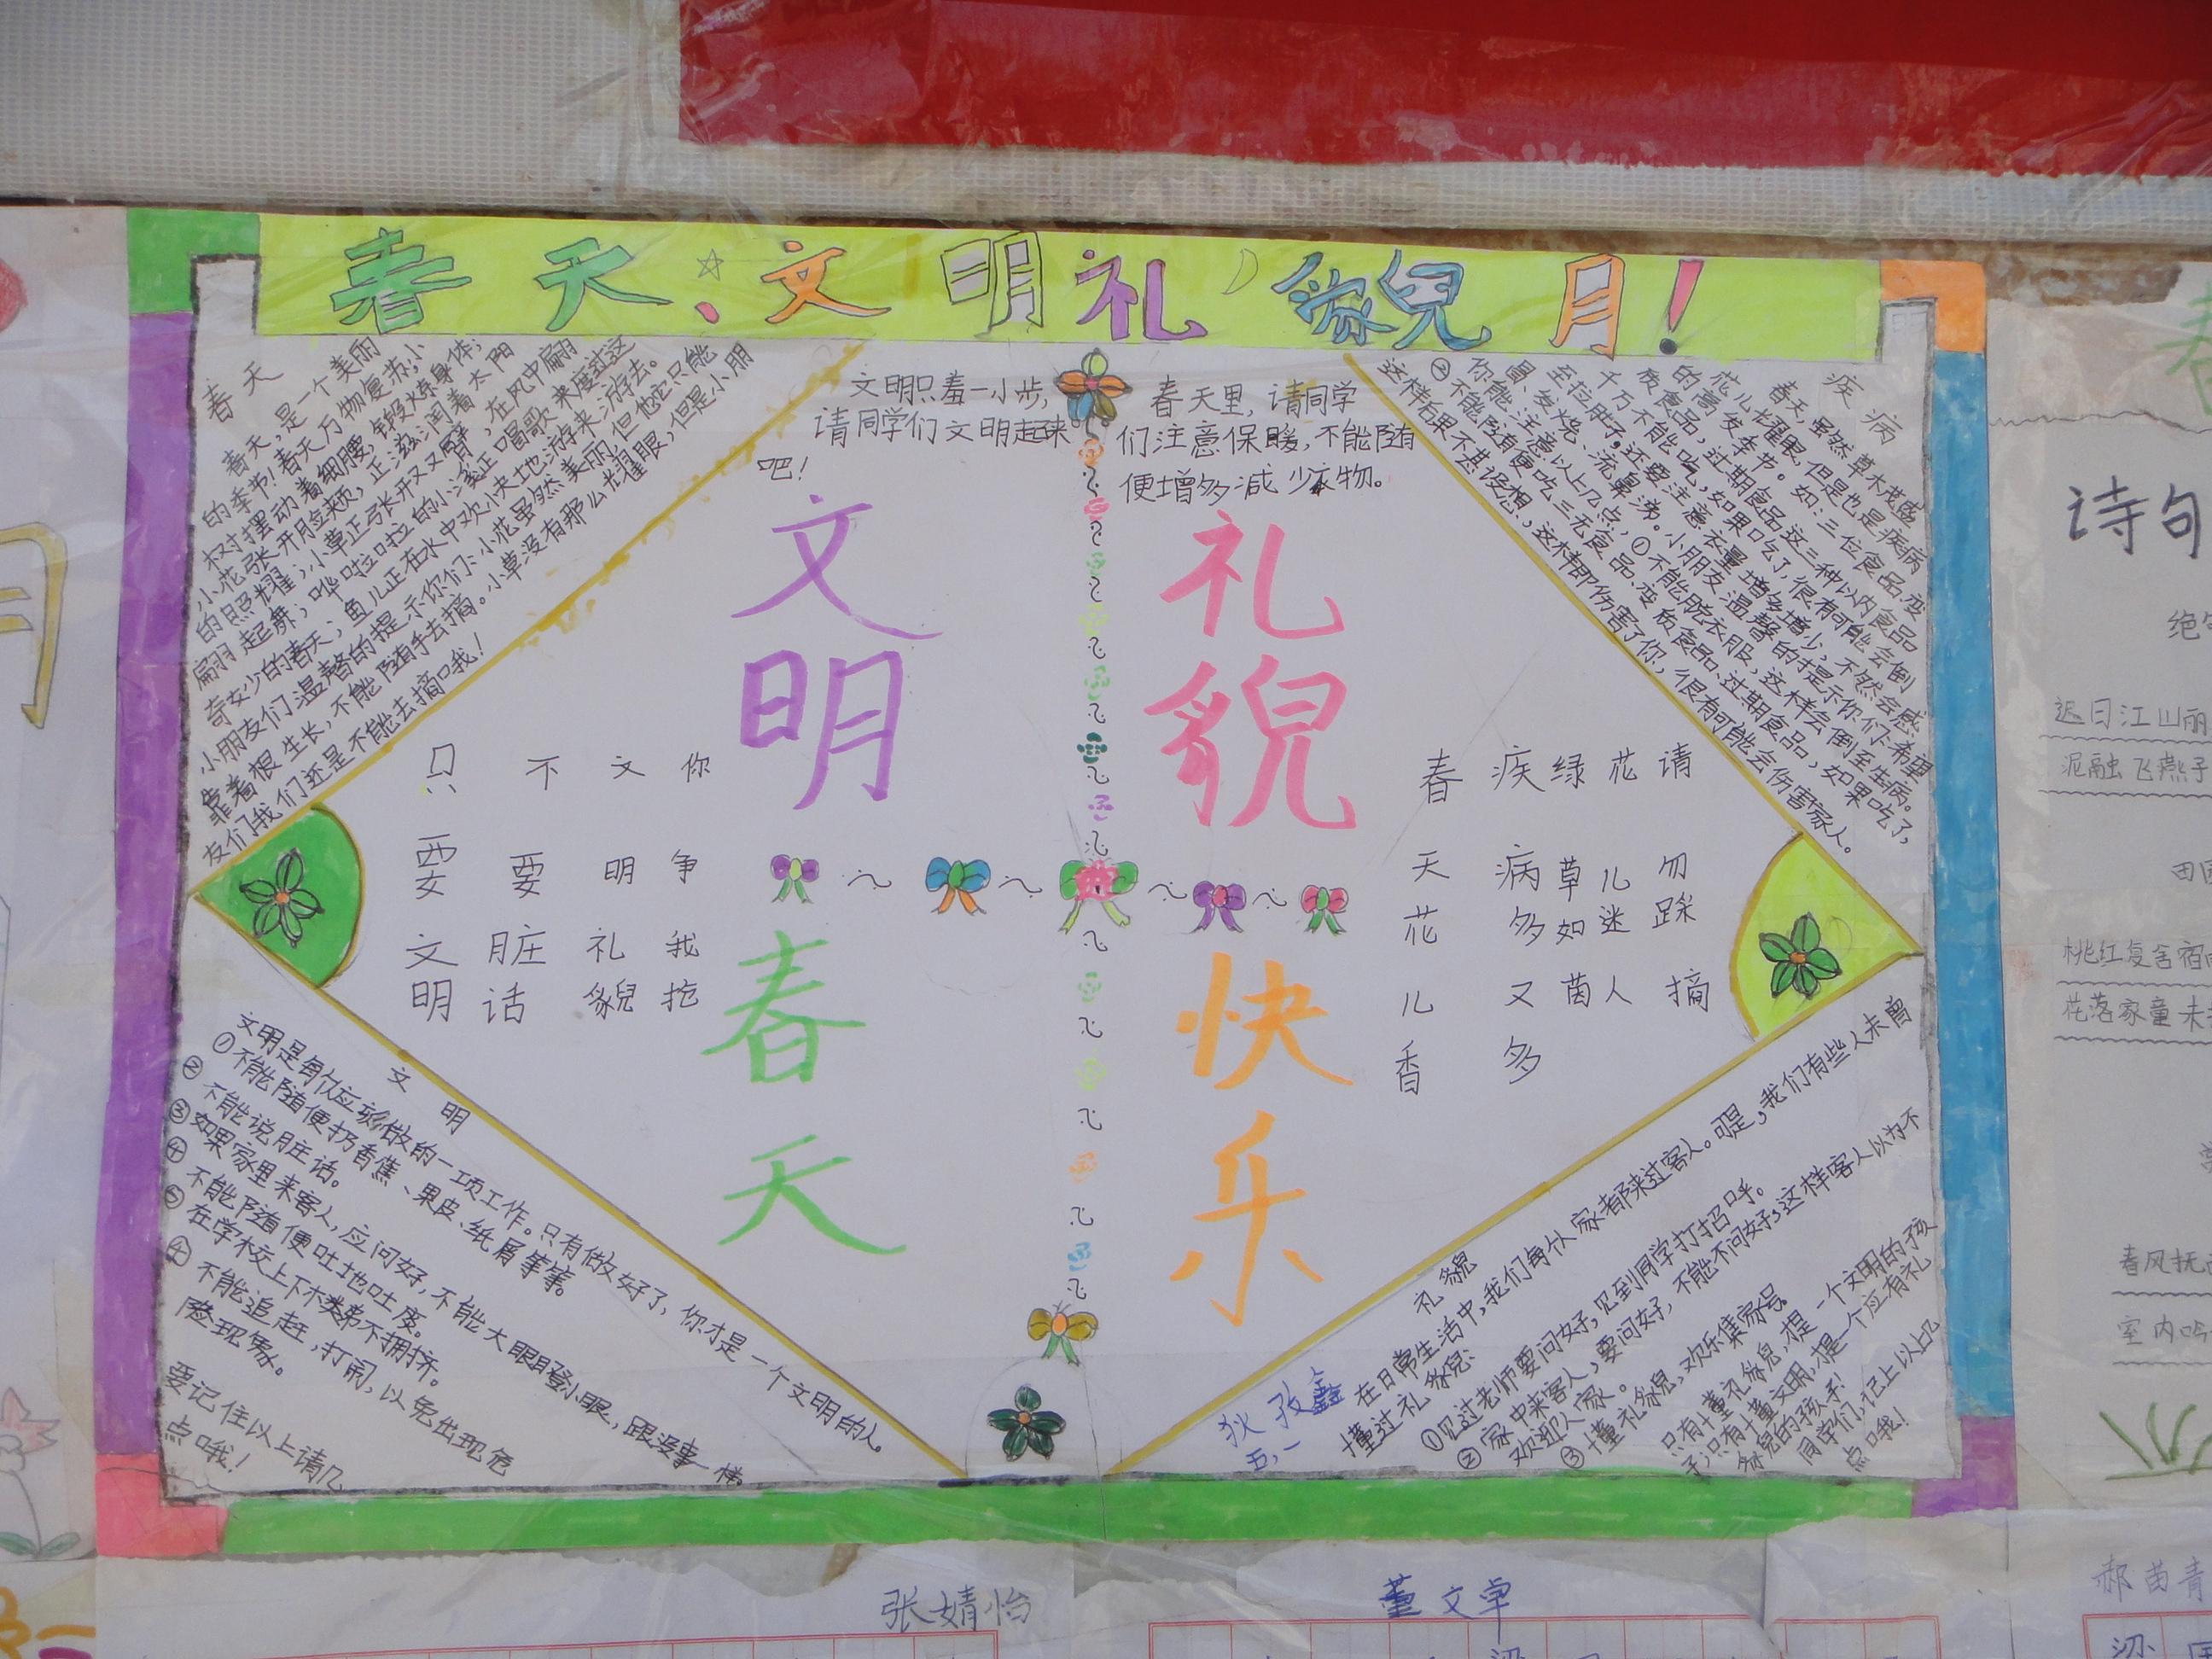 春天、文明礼貌月！
春天
春天，是一个美丽
的季节！春天万物复苏，小
树摆动着细腰，锻炼身体；
小花张开脸颊，正滋润着太阳
的照耀；小草正张开双臂，在风中翩
翩起舞；哗啦啦的小溪正唱歌来度过这
奇妙的春天；鱼儿正在水中欢快地游来游去。
小朋友们温馨的提示你们：小花虽然美丽，但是它只能
靠着根生长，不能随手去摘。小草没有那么耀眼，但是小朋
友们我们还是不能去摘哦！
文明只羞一小步，
请同学们文明起来
吧！
春天里，请同学
们注意保暖，不能随
便增多减少衣物。
疾病
春天，虽然草木茂盛
花儿耀眼，但是也是疾病
的高发季节。如：三位食品，变
质食品，过期食品，这三种以内食品
千万不能吃，如果吃了，很有可能会倒
至拉肚子，还要注意衣量增多增少，不然会感
冒、发烧、流鼻涕。小朋友温馨的提示你们：希望
你能注意以上几点，①不能脱衣服，这样会倒至生病。
②不能随便吃三无食品、变质食品、过期食品，如果吃了，
这样后果不堪设想，这样即伤害了你，很有可能会伤害家人。
文明
礼貌
春天
快乐
只要文明
不要脏话
文明礼貌
你争我抢
春天花儿香
疾病多又多
绿草如茵
花儿迷人
请勿踩摘
文明
文明是每位应该做的一项工作。只有做好了，你才是一个文明的人。
①不能随便扔香蕉、果皮、纸屑等等。
②不能说脏话。
③如果家里来客人，应问好，不能大眼瞪小眼，跟没事一样。
④不能随便吐地吐痰。
⑤在学校上下楼弟不拥挤。
⑥不能追赶，打闹，以免出现危
险现象。
要记住以上请几
点哦！
礼貌
在日常生活中，我们每个家都来过客人。可是，我们有些人未曾
懂过礼貌：
①见过老师要问好，见到同学打招呼。
②家中来客人，要问好，不能不问好，这样客人以为不
欢迎人家。
③懂礼貌，欢乐集家号
只有懂礼貌，才是一个文明的孩
子；只有懂文明，才是一个应有礼
貌的孩子！
同学们，记上以上几
点哦！
狄孜鑫
五，一
诗句
迟日江山丽
泥融飞燕子
桃红复含宿
花落家童未
春风抚
室内吟
张婧怡
董文卓
郝苗青